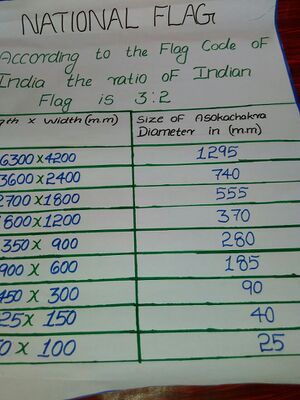 NATIONAL FLAG
According to the Flag Code of
India the ratio of Indian
Flag is 3:2
gth x Width (m.m) Size of Asokachakra
Diameter in (m.m)
6300 x 4200 1295
3600 x 2400 740
2700 x 1800 555
1800 x 1200 370
1350 x 900 280
900 x 600 185
450 x 300 90
25 x 150 40
0 x 100 25